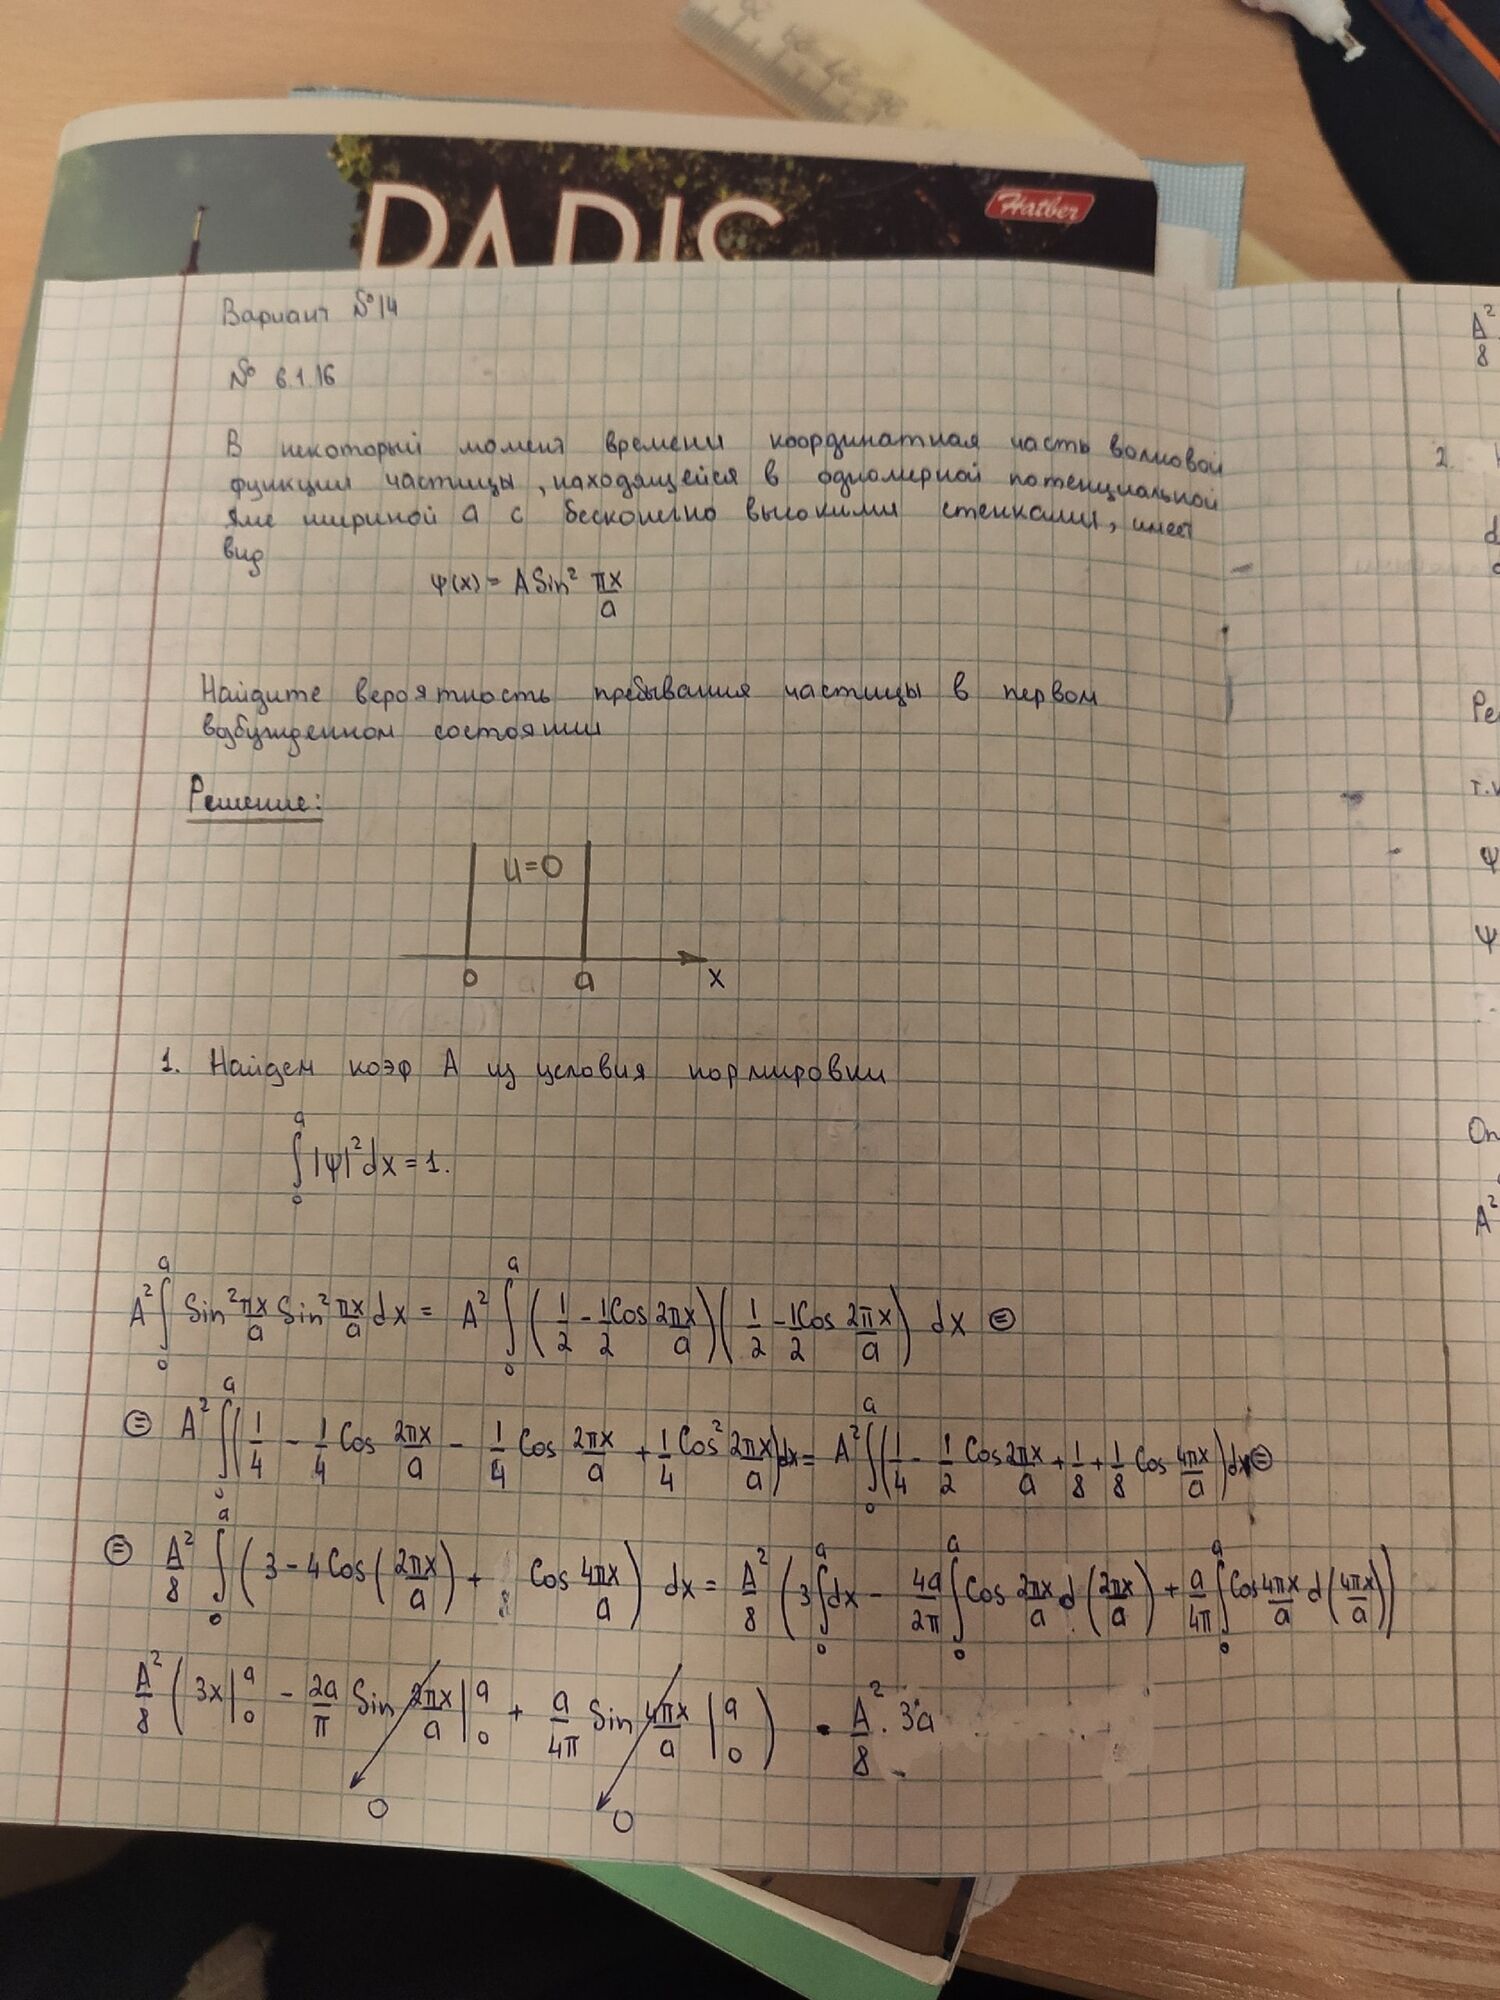 PARIS
Hatber
Вариант №14
№ 6.1.16
В некоторый момент времени координатная часть волновой
функции частицы, находящейся в одномерной потенциальной
яме шириной a с бесконечно высокими стенками, имеет
вид
ψ(x) = A Sin² πx/a
Найдите вероятность пребывания частицы в первом
возбужденном состоянии
Решение:
U=0
0 a x
1. Найдем коэф A из условия нормировки
∫₀ᵃ |ψ|² dx = 1.
A² ∫₀ᵃ Sin² πx/a Sin² πx/a dx = A² ∫₀ᵃ (1/2 - 1/2 Cos 2πx/a)(1/2 - 1/2 Cos 2πx/a) dx ⊜
⊜ A² ∫₀ᵃ (1/4 - 1/4 Cos 2πx/a - 1/4 Cos 2πx/a + 1/4 Cos² 2πx/a) dx = A² ∫₀ᵃ (1/4 - 1/2 Cos 2πx/a + 1/8 + 1/8 Cos 4πx/a) dx ⊜
⊜ A²/8 ∫₀ᵃ (3 - 4 Cos (2πx/a) + Cos 4πx/a) dx = A²/8 (3 ∫₀ᵃ dx - 4a/2π ∫₀ᵃ Cos 2πx/a d(2πx/a) + a/4π ∫₀ᵃ Cos 4πx/a d(4πx/a))
A²/8 (3x |₀ᵃ - 2a/π Sin 2πx/a |₀ᵃ + a/4π Sin 4πx/a |₀ᵃ) = A²/8 · 3a
0 0
A²/8
2.
A²